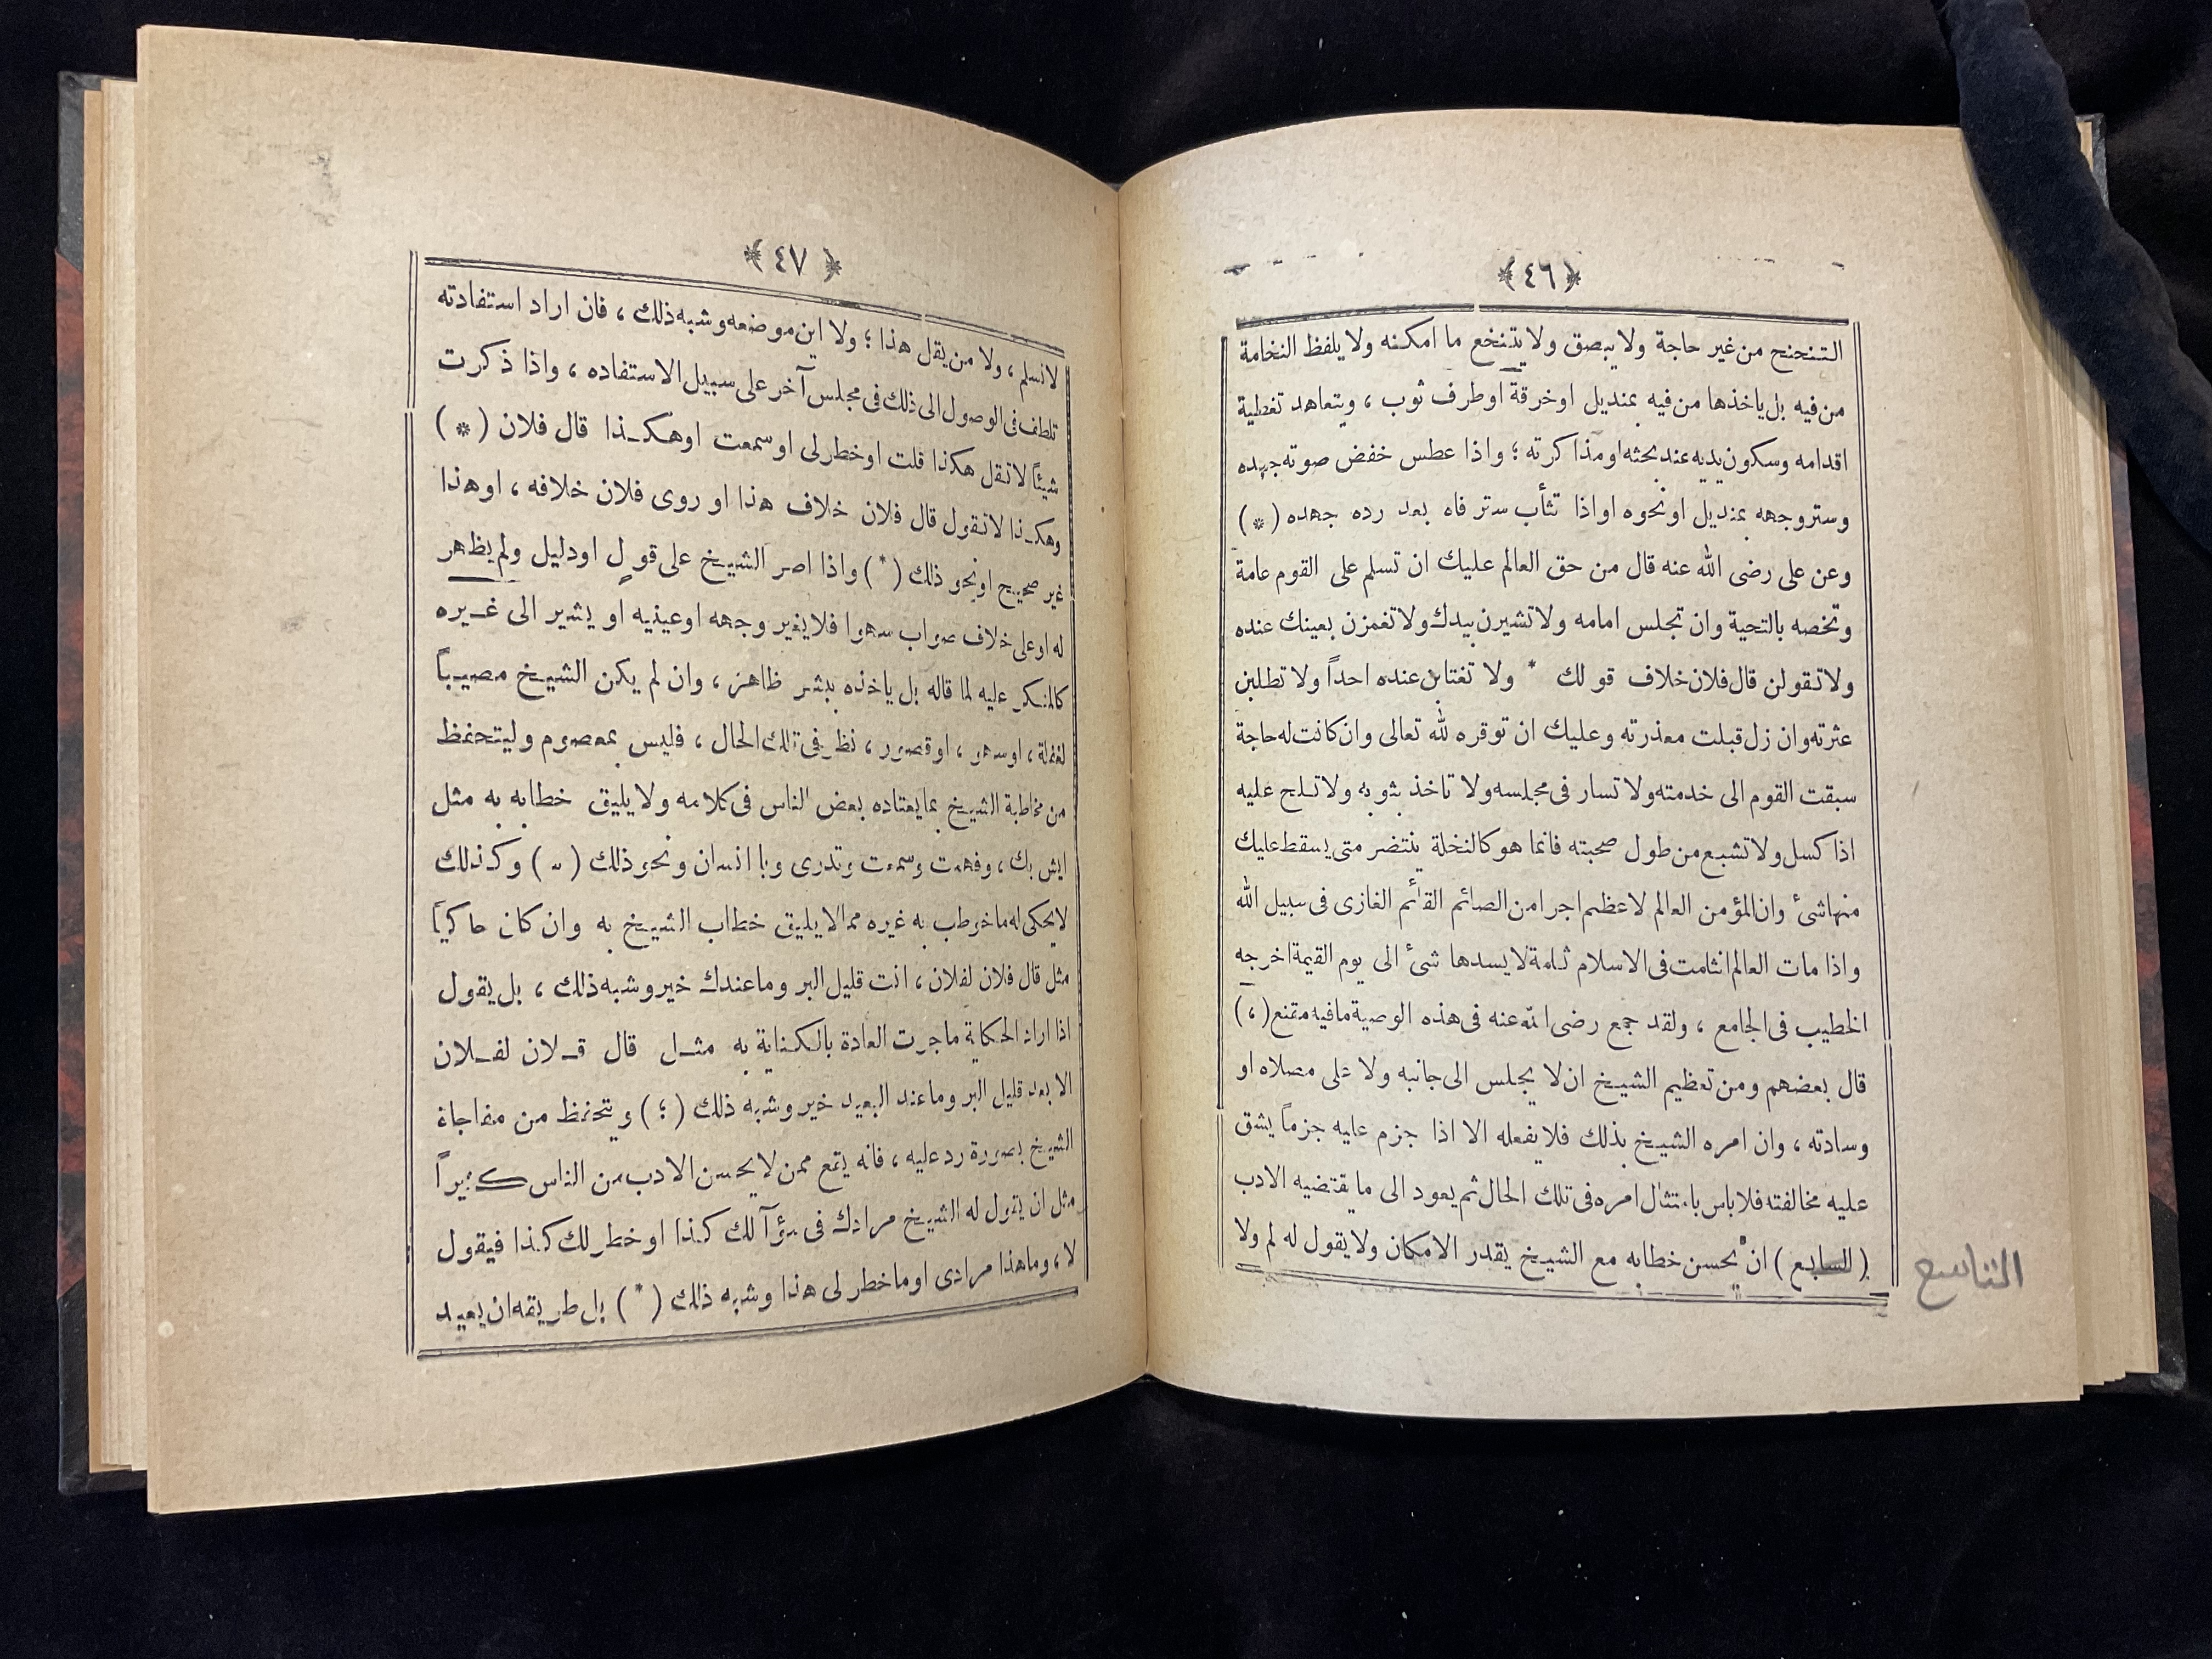 ﴿ ٤٦ ﴾
التنحنح من غير حاجة ولا يبصق ولا يتنخع ما امكنه ولا يلفظ النخامة
من فيه بل ياخذها من فيه بمنديل اوخرقة اوطرف ثوب ، ويتعاهد تغطية
اقدامه وسكون يديه عند بحثه اومذاكرته ؛ واذا عطس خفض صوته جهده
وستر وجهه بمنديل اونحوه اواذا تثأب ستر فاه بعد رده جهده ( * )
وعن على رضى الله عنه قال من حق العالم عليك ان تسلم على القوم عامة
وتخصه بالتحية وان تجلس امامه ولا تشيرن بيدك ولا تغمزن بعينك عنده
ولا تقولن قال فلان خلاف قولك * ولا تغتابن عنده احداً ولا تطلبن
عثرته وان زل قبلت معذرته وعليك ان توقره لله تعالى وان كانت له حاجة
سبقت القوم الى خدمته ولا تسار فى مجلسه ولا تاخذ بثوبه ولا تلح عليه
اذا كسل ولا تشبع من طول صحبته فانما هو كالنخلة ينتضر متى يسقط عليك
منها شئ وان المؤمن العالم لاعظم اجرا من الصائم القائم الغازى فى سبيل الله
واذا مات العالم انثلمت فى الاسلام ثلمة لا يسدها شئ الى يوم القيمة اخرجه
الخطيب فى الجامع ، ولقد جمع رضى الله عنه فى هذه الوصية ما فيه مقنع ( ، )
قال بعضهم ومن تعظيم الشيخ ان لا يجلس الى جانبه ولا على مصلاه او
وسادته ، وان امره الشيخ بذلك فلا يفعله الا اذا جزم عليه جزماً يشق
عليه مخالفته فلا باس بامتثال امره فى تلك الحال ثم يعود الى ما يقتضيه الادب
( السابع ) ان يحسن خطابه مع الشيخ يقدر الامكان ولا يقول له لم ولا
التاسع
﴿ ٤٧ ﴾
لا نسلم ، ولا من يقل هذا ؛ ولا اين موضعه وشبه ذلك ، فان اراد استفادته
تلطف فى الوصول الى ذلك فى مجلس آخر على سبيل الاستفاده ، واذا ذكرت
شيئاً لا تقل هكذا قلت اوخطر لى اوسمعت اوهكذا قال فلان ( * )
وهكذا لا تقول قال فلان خلاف هذا او روى فلان خلافه ، اوهذا
غير صحيح اونحو ذلك ( * ) واذا اصر الشيخ على قول اودليل ولم يظهر
له اوعلى خلاف صواب سهوا فلا يغير وجهه اوعينيه او يشير الى غيره
كالمنكر عليه لما قاله بل ياخذه ببشر ظاهر ، وان لم يكن الشيخ مصيباً
لغفلة ، اوسهو ، اوقصور ، نظر فى تلك الحال ، فليس بمعصوم وليتحفظ
من مخاطبة الشيخ بما يعتاده بعض الناس فى كلامه ولا يليق خطابه به مثل
ايش بك ، وفهمت وسمعت وتدرى ويا انسان ونحو ذلك ( * ) وكذلك
لا يحكى له ما خوطب به غيره مما لا يليق خطاب الشيخ به وان كان حاكياً
مثل قال فلان لفلان ، انت قليل البر وما عندك خير وشبه ذلك ، بل يقول
اذا اراد الحكاية ما جرت العادة بالكناية به مثل قال فلان لفلان
الابعد قليل البر وما عند البعيد خير وشبه ذلك ( ؛ ) ويتحفظ من مفاجاة
الشيخ بصورة رد عليه ، فانه يقع ممن لا يحسن الادب من الناس كثيراً
مثل ان يقول له الشيخ مرادك فى سؤآلك كذا اوخطر لك كذا فيقول
لا ، وما هذا مرادى اوما خطر لى هذا وشبه ذلك ( * ) بل طريقه ان يعيد